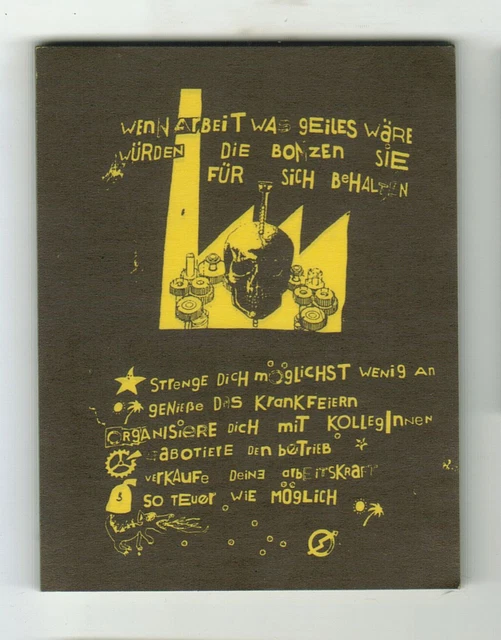 WENN ARBEIT WAS GEILES WÄRE
WÜRDEN DIE BONZEN SIE
FÜR SICH BEHALTEN
STRENGE DICH MÖGLICHST WENIG AN
GENIEßE DAS KRANKFEIERN
ORGANISIERE DICH MIT KOLLEGINNEN
SABOTIERE DEN BETRIEB
VERKAUFE DEINE ARBEITSKRAFT
SO TEUER WIE MÖGLICH
$